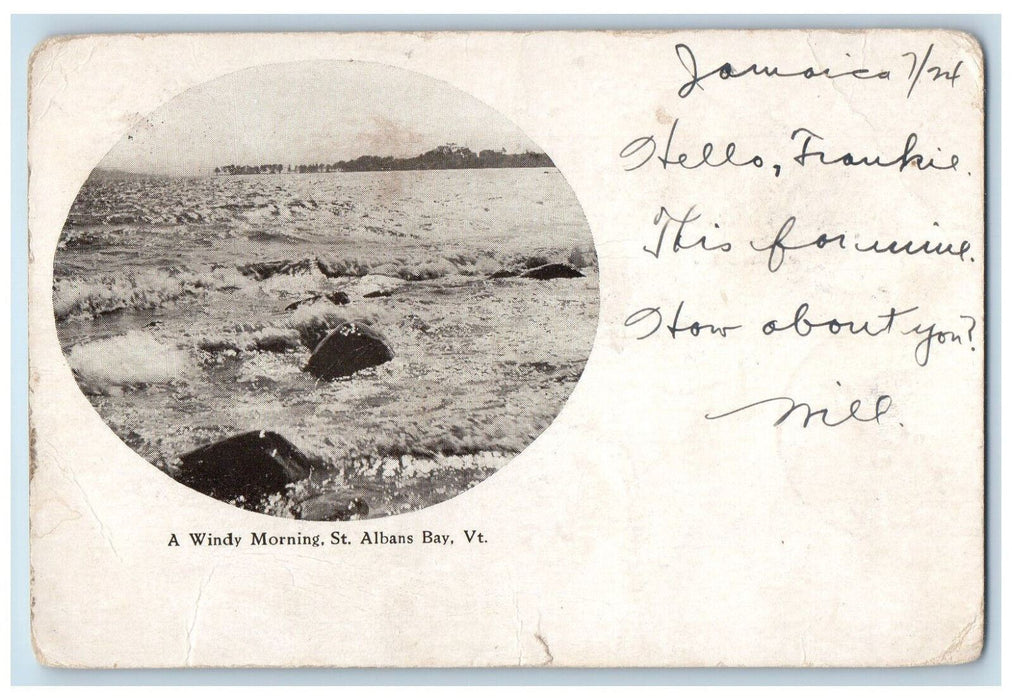 Jamaica 7/24
Hello, Frankie.
This for mine.
How about you?
Will.
A Windy Morning, St. Albans Bay, Vt.